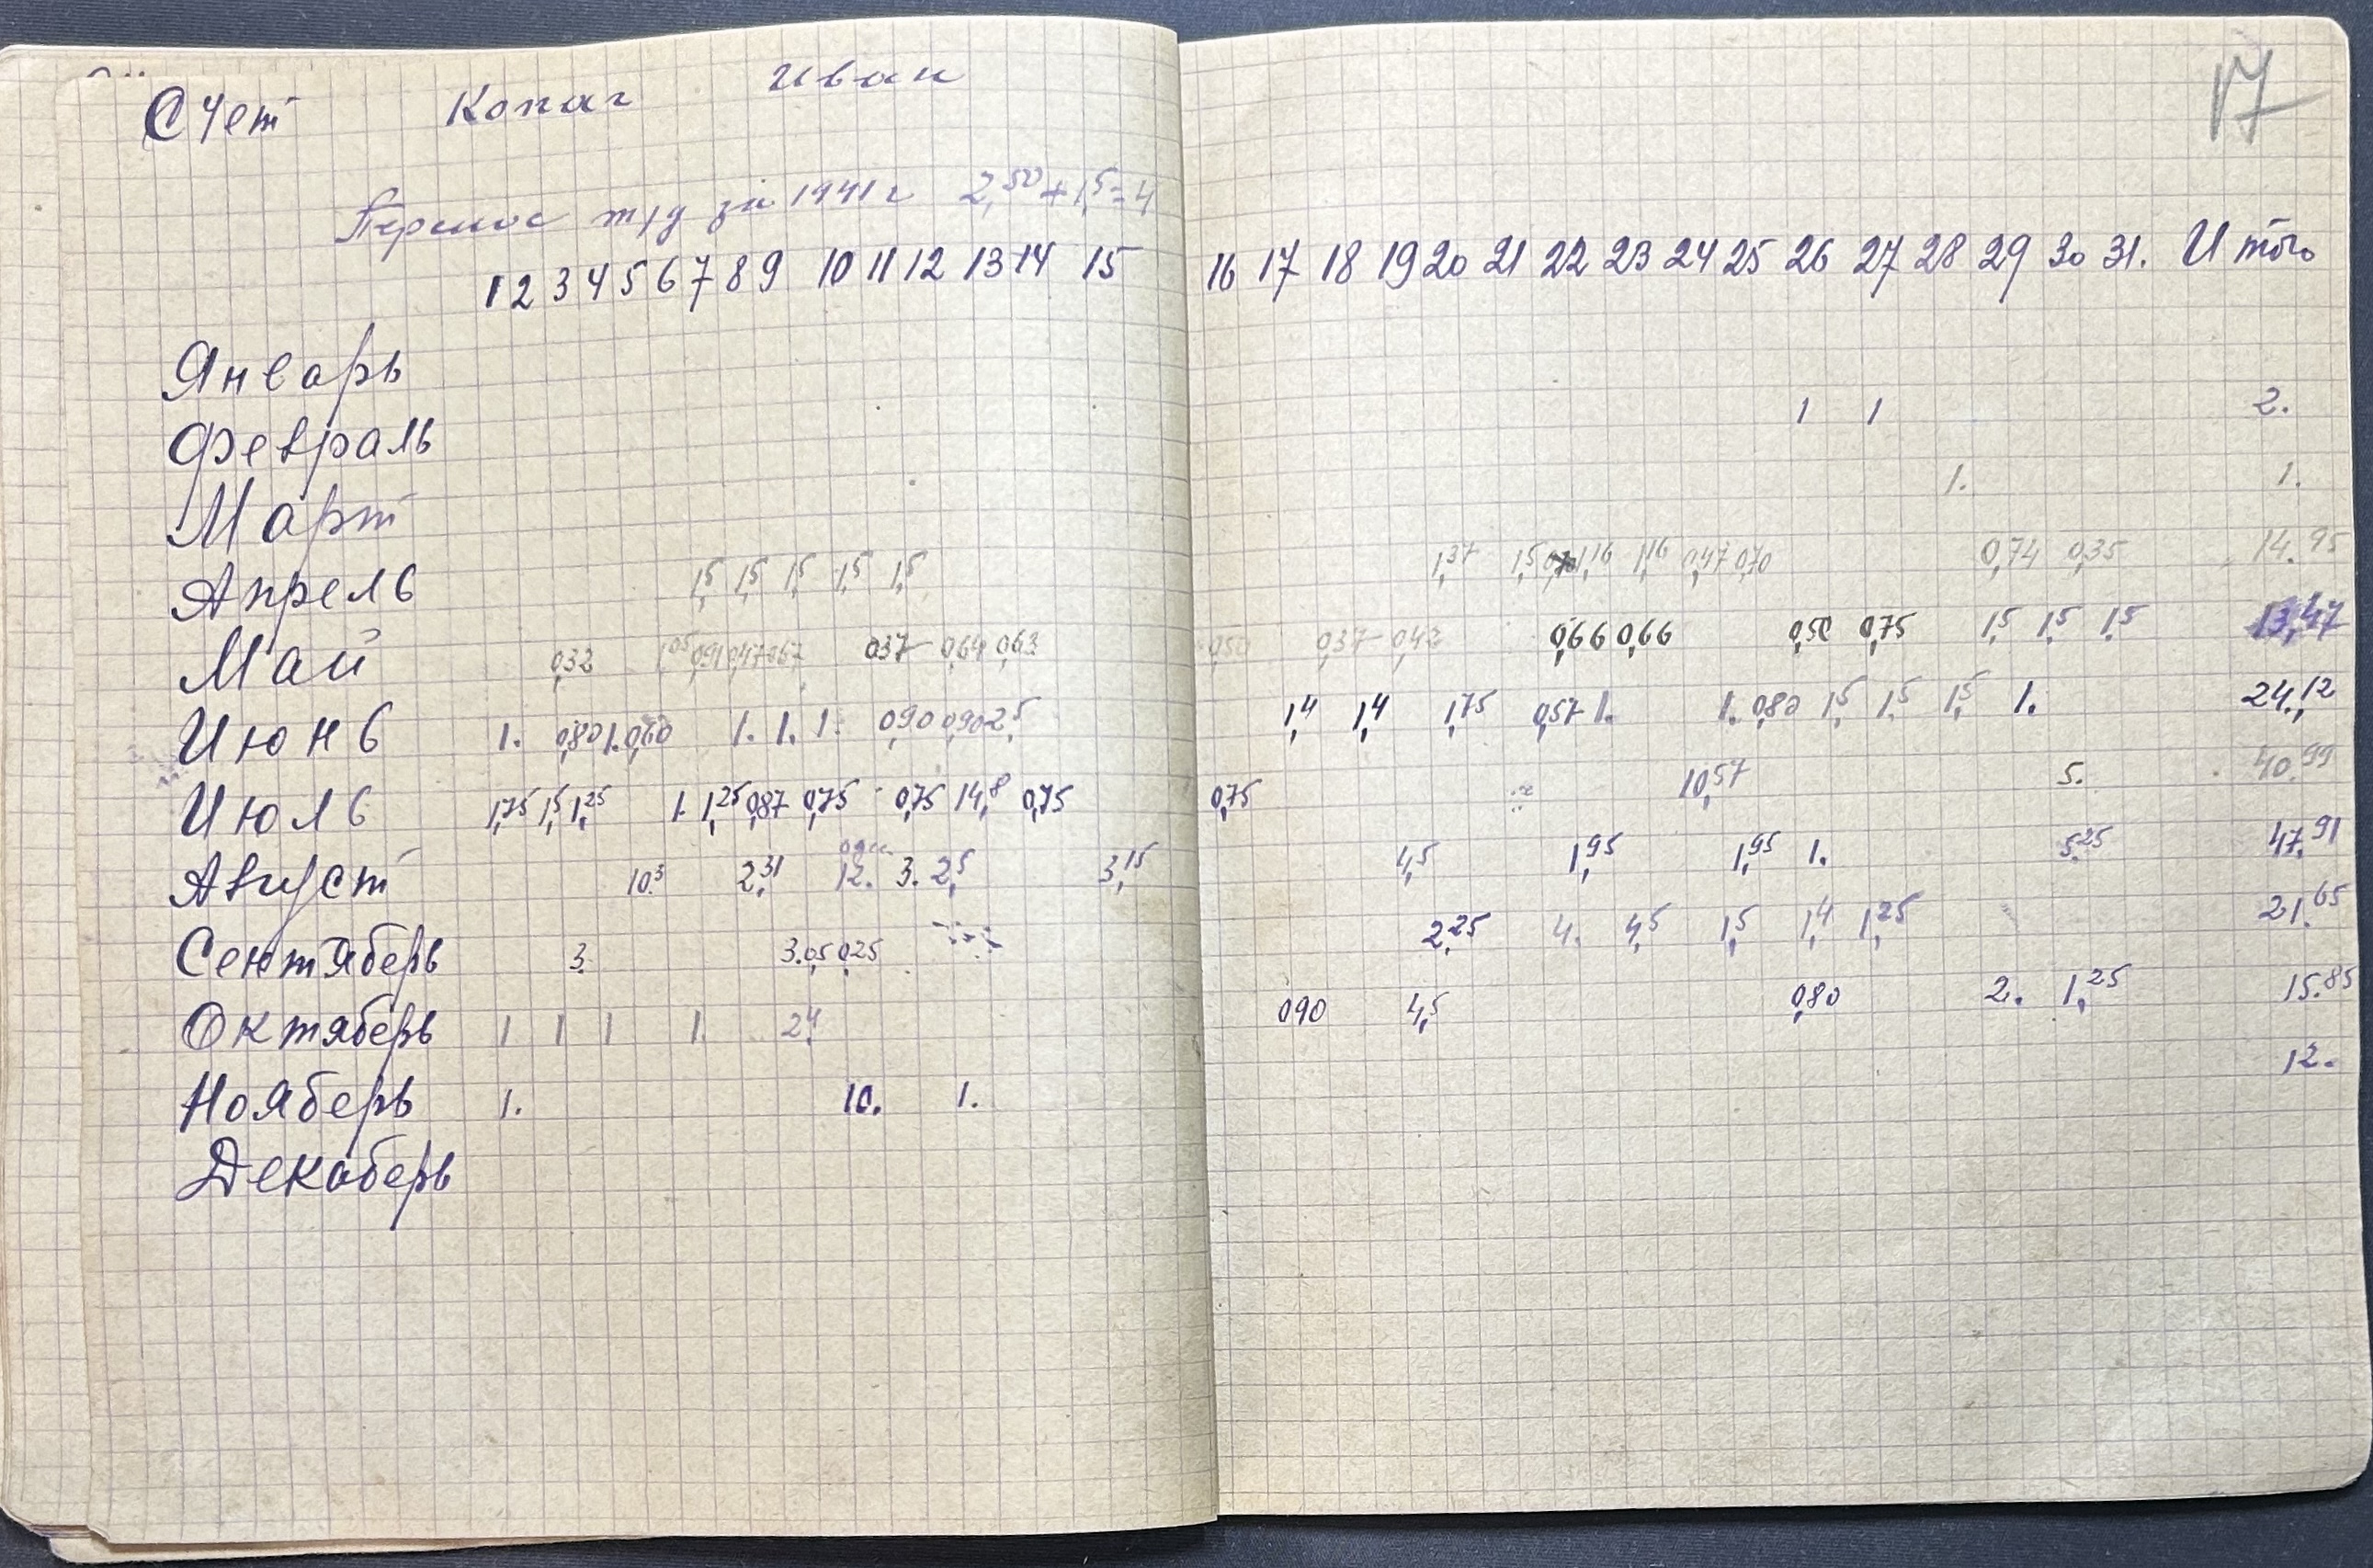 17
Счет Копач Иван
Перенос т/д за 1941 г 2,50 + 1,5 = 4
1 2 3 4 5 6 7 8 9 10 11 12 13 14 15 16 17 18 19 20 21 22 23 24 25 26 27 28 29 30 31. Итого
Январь
Февраль 1 1 2.
Март 1. 1.
Апрель 1,5 1,5 1,5 1,5 1,5 1,37 1,5 1,16 1,16 0,47 0,70 0,74 0,35 14.95
Май 0,32 1,05 0,91 0,47 0,67 0,37 0,64 0,63 0,50 0,37 0,42 0,66 0,66 0,50 0,75 1,5 1,5 1,5 13,47
Июнь 1. 0,80 1. 0,60 1. 1. 1. 0,90 0,90 2,5 1,4 1,4 1,75 0,57 1. 1. 0,80 1,5 1,5 1,5 1. 24,12
Июль 1,75 1,5 1,25 1. 1,25 0,87 0,75 0,75 14,8 0,75 0,75 10,57 5. 40.99
Август 10.3 2,31 12. 3. 2,5 3,15 4,5 1,95 1,95 1. 5.25 47.91
Сентяберь 3. 3.05 0,25 2,25 4. 4,5 1,5 1,4 1,25 21.65
Октяберь 1 1 1 1. 2,4 0,90 4,5 0,80 2. 1,25 15.85
Ноябeрь 1. 10. 1. 12.
Декаберь